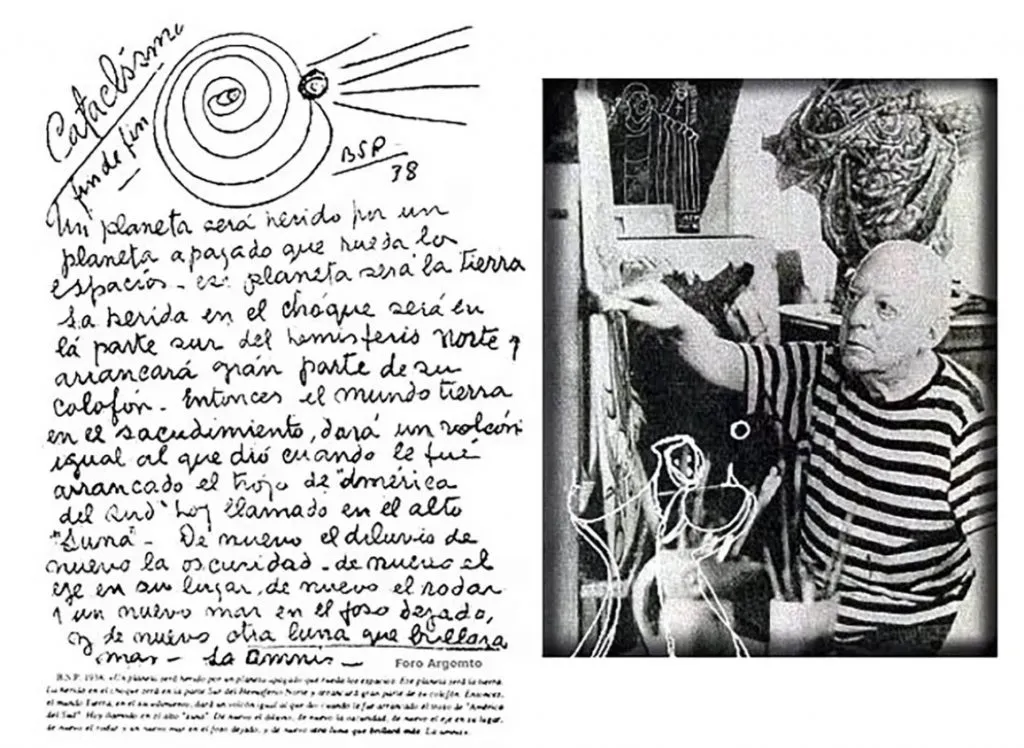 Cataclismo
fin de fin
BSP
38
Un planeta será herido por un
planeta apagado que rueda los
espacios - ese planeta será la tierra
La herida en el choque será en
la parte sur del hemisferio Norte y
arrancará gran parte de su
colofón. Entonces el mundo tierra
en el sacudimiento, dará un volcón
igual al que dió cuando le fué
arrancado el trozo de "América
del Sud" hoy llamado en el alto
"Luna" - De nuevo el diluvio de
nuevo la oscuridad - de nuevo el
eje en su lugar, de nuevo el rodar
y un nuevo mar en el foso dejado,
y de nuevo otra luna que brillara
mas - La Amnis -
Foro Argemto
B.S.P. 1938. «Un planeta será herido por un planeta apagado que rueda los espacios. Ese planeta será la tierra.
La herida en el choque será en la parte Sur del Hemisferio Norte y arrancará gran parte de su colofón. Entonces,
el mundo Tierra, en el sacudimiento, dará un volcón igual al que dio cuando le fue arrancado el trozo de "América
del Sud". Hoy llamado en el alto "Luna". De nuevo el diluvio, de nuevo la oscuridad, de nuevo el eje en su lugar,
de nuevo el rodar y un nuevo mar en el foso dejado, y de nuevo otra luna que brillará más. La